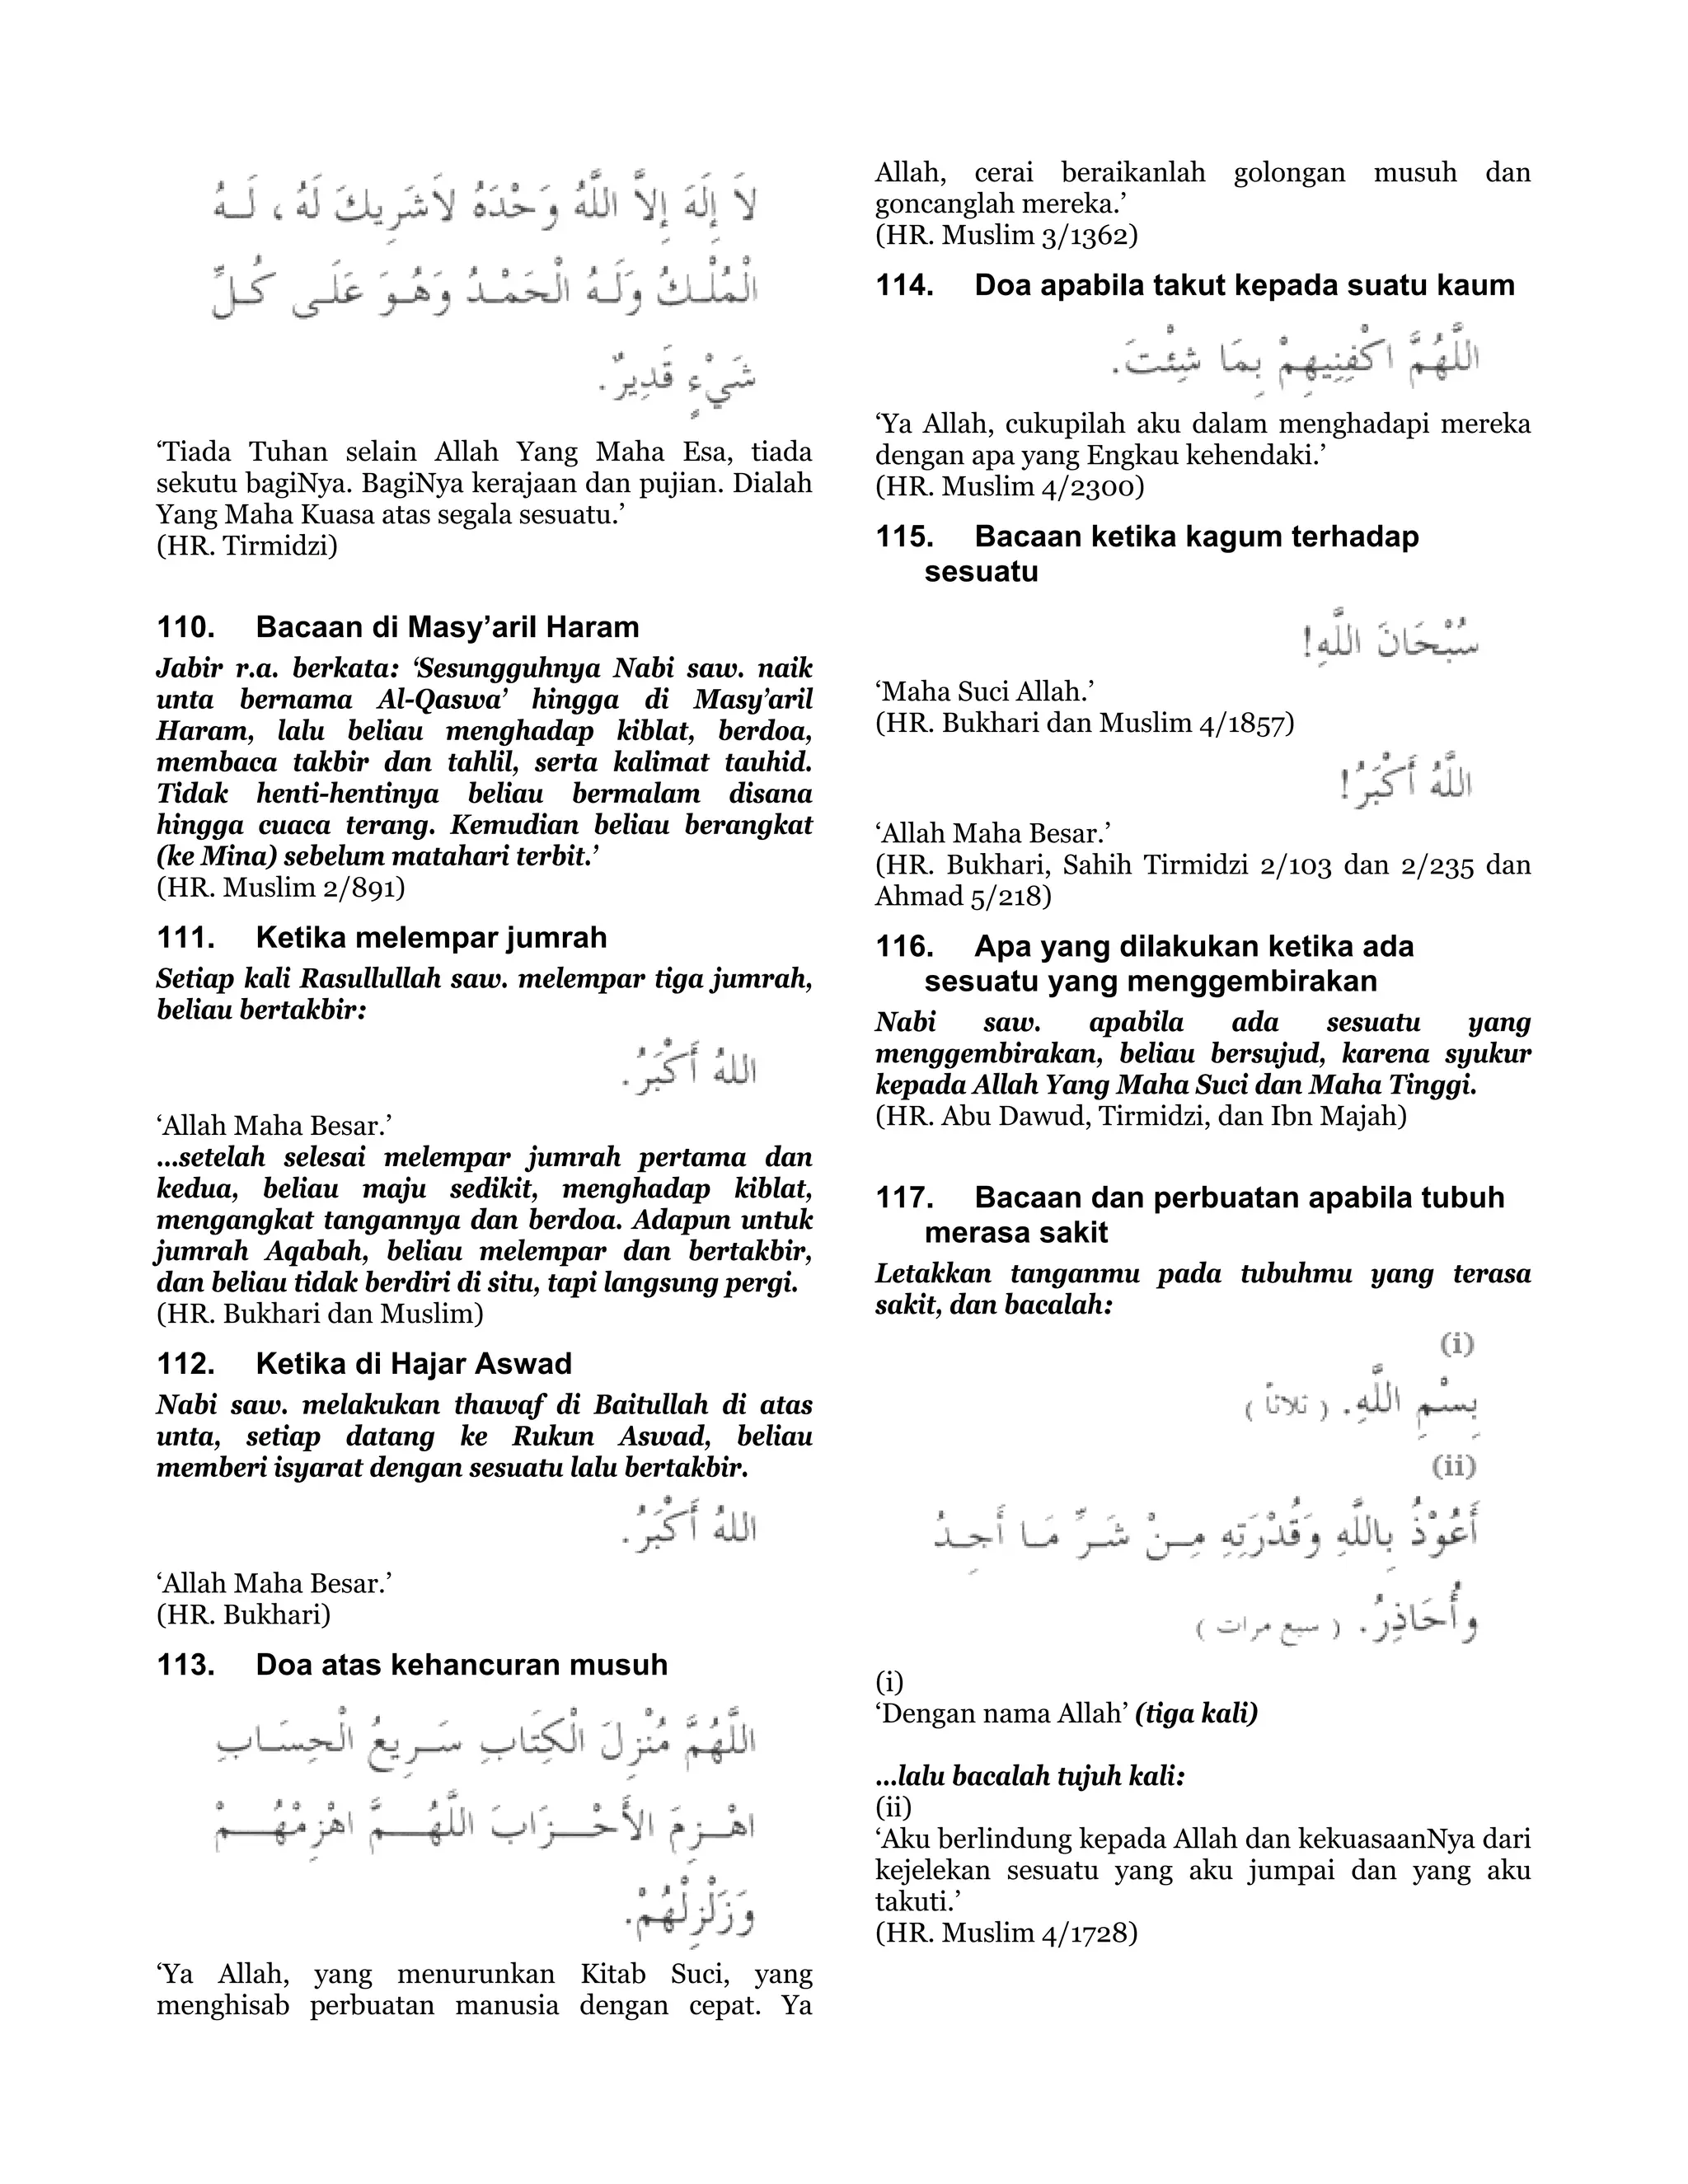 لاَ إِلَهَ إِلاَّ اللَّهُ وَحْدَهُ لاَشَرِيكَ لَهُ ، لَـهُ
الْمُلْـكُ وَلَـهُ الْحَمْـدُ وَهُـوَ عَلَـى كُـلِّ
شَيْءٍ قَدِيرٌ.
‘Tiada Tuhan selain Allah Yang Maha Esa, tiada
sekutu bagiNya. BagiNya kerajaan dan pujian. Dialah
Yang Maha Kuasa atas segala sesuatu.’
(HR. Tirmidzi)
110. Bacaan di Masy’aril Haram
Jabir r.a. berkata: ‘Sesungguhnya Nabi saw. naik
unta bernama Al-Qaswa’ hingga di Masy’aril
Haram, lalu beliau menghadap kiblat, berdoa,
membaca takbir dan tahlil, serta kalimat tauhid.
Tidak henti-hentinya beliau bermalam disana
hingga cuaca terang. Kemudian beliau berangkat
(ke Mina) sebelum matahari terbit.’
(HR. Muslim 2/891)
111. Ketika melempar jumrah
Setiap kali Rasullullah saw. melempar tiga jumrah,
beliau bertakbir:
اللهُ أَكْبَرُ.
‘Allah Maha Besar.’
...setelah selesai melempar jumrah pertama dan
kedua, beliau maju sedikit, menghadap kiblat,
mengangkat tangannya dan berdoa. Adapun untuk
jumrah Aqabah, beliau melempar dan bertakbir,
dan beliau tidak berdiri di situ, tapi langsung pergi.
(HR. Bukhari dan Muslim)
112. Ketika di Hajar Aswad
Nabi saw. melakukan thawaf di Baitullah di atas
unta, setiap datang ke Rukun Aswad, beliau
memberi isyarat dengan sesuatu lalu bertakbir.
اللهُ أَكْبَرُ.
‘Allah Maha Besar.’
(HR. Bukhari)
113. Doa atas kehancuran musuh
اللَّهُمَّ مُنْزِلَ الْكِتَابِ سَـرِيعُ الْحِسَـابِ
اهْـزِمَ الأَحْـزَابَ اللَّهُـمَّ اهْزِمْهُـمْ
وَزَلْزِلْهُمْ.
‘Ya Allah, yang menurunkan Kitab Suci, yang
menghisab perbuatan manusia dengan cepat. Ya
Allah, cerai beraikanlah golongan musuh dan
goncanglah mereka.’
(HR. Muslim 3/1362)
114. Doa apabila takut kepada suatu kaum
اللَّهُمَّ اكْفِنِيهِمْ بِمَا شِئْتَ.
‘Ya Allah, cukupilah aku dalam menghadapi mereka
dengan apa yang Engkau kehendaki.’
(HR. Muslim 4/2300)
115. Bacaan ketika kagum terhadap
sesuatu
سُبْحَانَ اللَّهِ!
‘Maha Suci Allah.’
(HR. Bukhari dan Muslim 4/1857)
اللَّهُ أَكْبَرُ!
‘Allah Maha Besar.’
(HR. Bukhari, Sahih Tirmidzi 2/103 dan 2/235 dan
Ahmad 5/218)
116. Apa yang dilakukan ketika ada
sesuatu yang menggembirakan
Nabi saw. apabila ada sesuatu yang
menggembirakan, beliau bersujud, karena syukur
kepada Allah Yang Maha Suci dan Maha Tinggi.
(HR. Abu Dawud, Tirmidzi, dan Ibn Majah)
117. Bacaan dan perbuatan apabila tubuh
merasa sakit
Letakkan tanganmu pada tubuhmu yang terasa
sakit, dan bacalah:
(i)
بِسْمِ اللَّهِ. ( ثلاثاً )
(ii)
أَعُوْذُ بِاللَّهِ وَقُدْرَتِهِ مِـنْ شَـرِّ مَـا أَجِـدُ
وأُحَاذِرُ. ( سبع مرات )
(i)
‘Dengan nama Allah’ (tiga kali)
...lalu bacalah tujuh kali:
(ii)
‘Aku berlindung kepada Allah dan kekuasaanNya dari
kejelekan sesuatu yang aku jumpai dan yang aku
takuti.’
(HR. Muslim 4/1728)